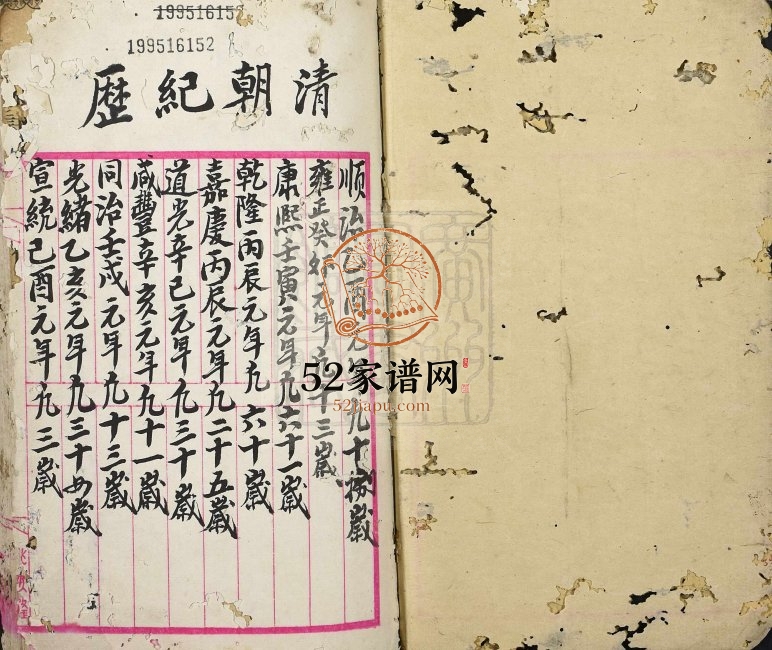 199516152
199516152
清朝紀歷
順治乙酉元年凡十捌歲
雍正癸卯元年凡十三歲
康熙壬寅元年凡六十一歲
乾隆丙辰元年凡六十歲
嘉慶丙辰元年凡二十五歲
道光辛巳元年凡三十歲
咸豐辛亥元年凡十一歲
同治壬戌元年凡十三歲
光緒乙亥元年凡三十四歲
宣統己酉元年凡三歲
52家谱网
52jiapu.com